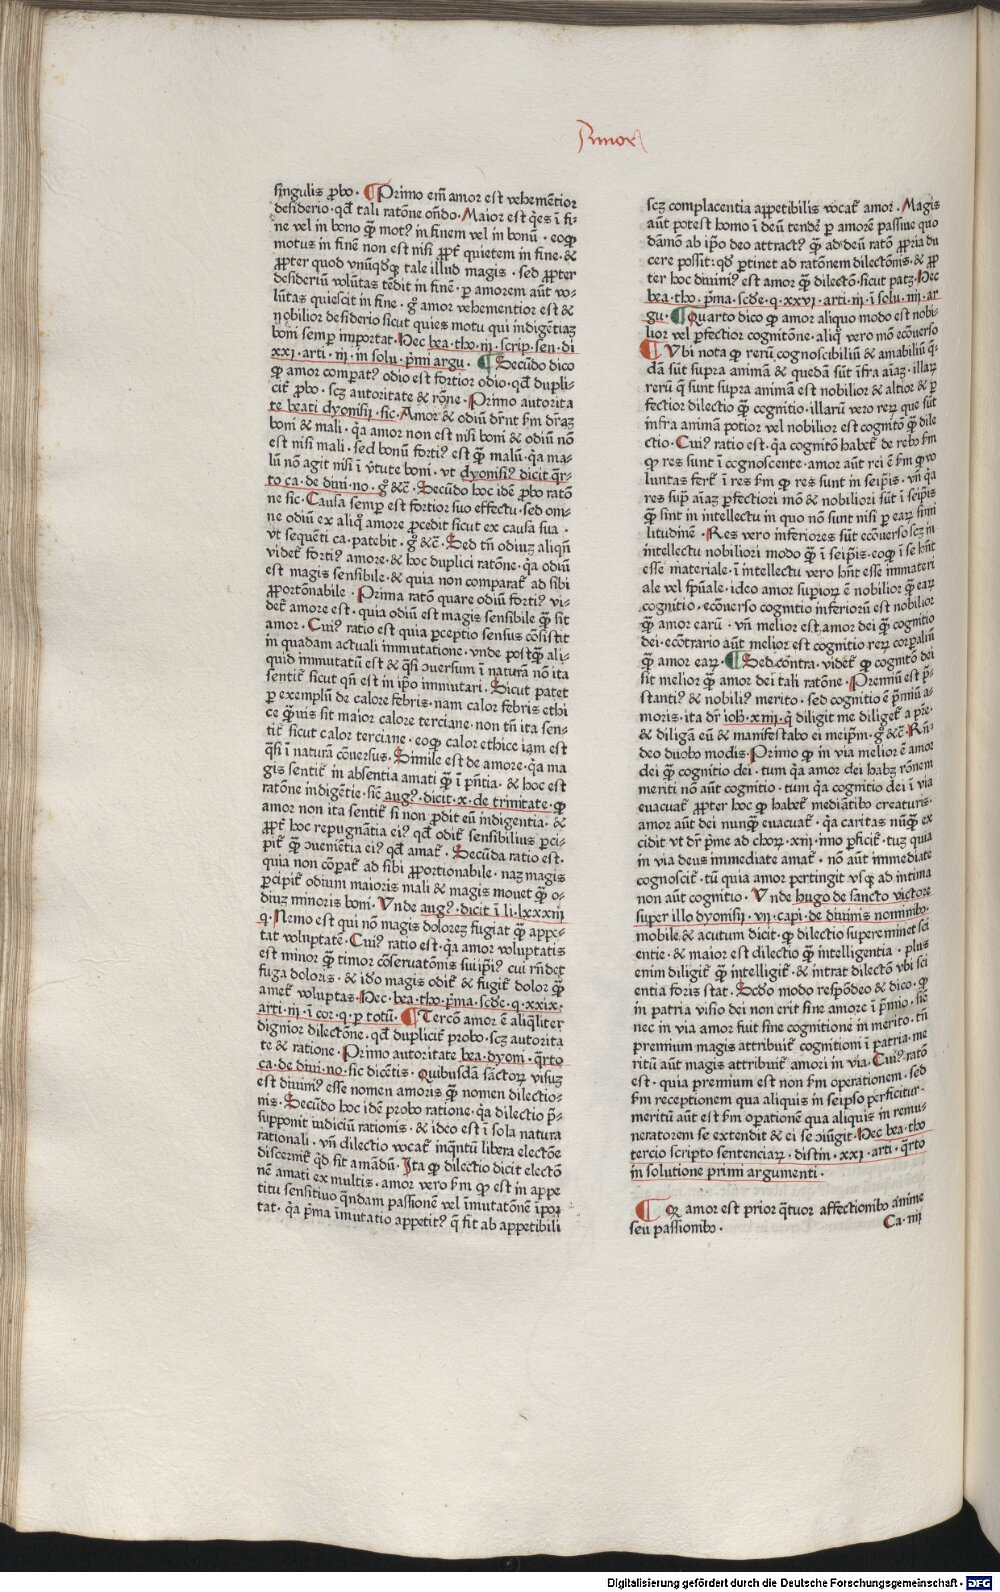 Amor
singulis ꝓbo · ¶Primo em̄ amor est vehemētior
desiderio · qđ tali ratōne on̄do · Maior est q̄es ī fi-
ne vel in bono q̄ꝫ motꝰ in finem vel in bonū · eoqꝫ
motus in finē non est nisi ꝓpt̉ quietem in fine · &
ꝓpter quod vnūqđqꝫ tale illud magis · sed ꝓpter
desideriū volūtas tēdit in finē · ꝑ amorem aūt vo-
lūtas quiescit in fine · g̊ amor vehementior est &
nobilior desiderio sicut quies motu qui indigētiaꝫ
boni semꝑ importat · Hec bea · tho · iij · scrip · sen · di
xxvi · arti · iij · in solu · pͥmi argu · ¶ Secūdo dico
ꝙ amor comꝑatꝰ odio est fortior odio · qđ dupli-
cit̉ ꝓbo · scꝫ autoritate & rōne · Primo autorita
te beati dyonisij · sic · Amor & odiū dr̄nt ẜm dr̄aꝫ
boni & mali · q̉a amor non est nisi boni & odiū nō
est nisi mali · sed bonū fortiꝰ est q̄ꝫ malū · q̉a ma-
lū nō agit nisi ī v̉tute boni · vt dyonisiꝰ dicit q̉r-
to ca · de diui · no · g̊ &c̄ · Secūdo hoc idē ꝓbo ratō
ne sic · Causa semꝑ est fortior suo effectu · sed om-
ne odiū ex aliq̊ amore ꝓcedit sicut ex causa sua ·
vt sequēti ca · patebit · g̊ &c̄ · Sed tn̄ odiuꝫ aliqn̄
videt̉ fortiꝰ amore · & hoc duplici ratōne · q̉a odiū
est magis sensibile · & quia non comparat̉ ad sibi
ꝓportōnabile · Prima ratō quare odiū fortiꝰ vi-
det̉ amore est · quia odiū est magis sensibile q̄ꝫ sit
amor · Cuiꝰ ratio est quia ꝑceptio sensus cōsistit
in quadam actuali immutatione · vnde postq̄ꝫ ali-
quid immutatū est & q̉si ↄuersum ī naturā nō ita
sentit̉ sicut qn̄ est in ip̄o immutari · Sicut patet
ꝑ exemplū de calore febris · nam calor febris ethi
ce q̄ꝫuis sit maior calore terciane · non tn̄ ita sen-
tit̉ sicut calor terciane · eoqꝫ calor ethice iam est
q̉si ī naturā cōuersus · Simile est de amore · q̉a ma
gis sentit̉ in absentia amati q̄ꝫ ī pn̄tia · & hoc est
ratōne indigētie · sic̄ augꝰ · dicit · x · de trinitate · ꝙ
amor non ita sentit̉ si non ꝓdit eū indigentia · &
ꝓpt̉ hoc repugnātia eiꝰ qđ odit̉ sensibilius ꝑci-
pit̉ q̄ꝫ ↄuemētia eiꝰ qđ amat̉ · Secūda ratio est ·
quia non cōpat̉ ad sibi ꝓportionabile · naꝫ magis
ꝑcipit̉ odium maioris mali & magis mouet q̄ꝫ o-
diuꝫ minoris boni · Vnde augꝰ · dicit ī li · lxxxiij
q · Nemo est qui nō magis doloreꝫ fugiat q̄ꝫ appe-
tat voluptatē · Cuiꝰ ratio est · q̉a amor voluptatis
est minor q̄ꝫ timor cōseruatōnis sui ip̄iꝰ · cui rn̄det
fuga doloris · & ido magis odit̉ & fugit̉ dolor q̄ꝫ
amet̉ voluptas · Hec · bea · tho · pͥma · scđe · q · xxix ·
arti · iij · ī cor · q · ꝑ totū · ¶Tercō amor ē aliq̉liter
dignior dilectōne · qđ duplicit̉ probo · scꝫ autorita
te & ratione · Primo autoritate bea · dyoni · q̉rto
ca · de diui · no · sic dicētis · Quibusdā sāctoꝝ visuꝫ
est diuiniꝰ esse nomen amoris q̄ꝫ nomen dilectio-
nis · Secūdo hoc idē probo ratione · q̉a dilectio p̄-
supponit iudiciū rationis · & ideo est ī sola natura
rationali · vn̄ dilectio vocat̉ inq̉ntū libera electōe
discernit̉ q̉d sit amādū · Ita ꝙ dilectio dicit electō
nē amati ex multis · amor vero ẜm ꝙ est in appe
titu sensitiuo q̉ndam passionē vel īmutatōnē īpor
tat · q̉a pͥma īmutatio appetitꝰ q̄ fit ab appetibili
scꝫ complacentia appetibilis vocat̉ amor · Magis
aūt potest homo ī deū tendē ꝑ amorē passiue quo
dāmō ab ip̄o deo attractꝰ q̄ꝫ ad deū ratō ꝓpria du
cere possit : qđ ꝑtinet ad ratōnem dilectōnis · & ꝓp
ter hoc diuiniꝰ est amor q̄ꝫ dilectō · sicut patꝫ · Hec
bea · tho · pͥma · scđe · q · xxvi · arti · iij · ī solu · iiij · ar
gu · ¶ Quarto dico ꝙ amor aliquo modo est nobi-
lior vel ꝑfectior cognitōne · aliq̊ vero mō ecōuerso
¶ Vbi nota ꝙ rerū cognoscibiliū & amabiliū q̄-
dā sūt supra animā & quedā sūt īfra aīaꝫ · illaꝝ
rerū q̄ sunt supra animā est nobilior & altior & ꝑ
fectior dilectio q̄ꝫ cognitio · illarū vero reꝝ que sūt
infra animā potior vel nobilior est cognitō q̄ꝫ dile
ctio · Cuiꝰ ratio est · q̉a cognitō habet̉ de rebꝰ ẜm
ꝙ res sunt ī cognoscente · amor aūt rei ē ẜm ꝙ vo
luntas fert̉ ī res ẜm ꝙ res sunt in seip̄is · vn̄ q̉a
res sup̄ aīaꝫ ꝑfectiori mō & nobiliori sūt ī seip̄is
q̄ꝫ sint in intellectu in quo nō sunt nisi ꝑ eaꝝ simi
litudinē · Res vero inferiores sūt ecōuerso scꝫ in
intellectu nobiliori modo q̄ꝫ ī seip̄is · eoqꝫ ī se hn̄t
esse materiale · ī intellectu vero hn̄t esse immateri
ale vel sp̄uale · ideo amor suꝑioꝝ ē nobilior q̄ꝫ eaꝝ
cognitio · ecōuerso cognitio inferiorū est nobilior
q̄ꝫ amor earū · vn̄ melior est amor dei q̄ꝫ cognitio
dei · ecōtrario aūt melior est cognitio reꝝ corꝑaliū
q̄ꝫ amor eaꝝ · ¶ Sed cōntra · videt̉ ꝙ cognitō dei
sit melior q̄ꝫ amor dei tali ratōne · Premiū est p̄-
stantiꝰ & nobiliꝰ merito · sed cognitio ē p̄miū a-
moris · ita dr̄ ioh̄ · xiiij · q̉ diligit me diliget̉ a pr̄e ·
& diligā eū & manifestabo ei meip̄m · g̊ &c̄ · Rn̄-
deo duobꝰ modis · Primo ꝙ in via melior ē amor
dei q̄ꝫ cognitio dei · tum q̉a amor dei habꝫ rōnem
meriti nō aūt cognitio · tum q̉a cognitio dei ī via
euacuat̉ ꝓpter hoc ꝙ habet̉ mediātibꝰ creaturis ·
amor aūt dei nunq̄ꝫ euacuat̉ · q̉a caritas nūq̄ꝫ ex
cidit vt dr̄ pͥme ad choꝝ · xiij · īmo ꝑficit̉ · tuꝫ quia
in via deus immediate amat̉ · nō aūt immediate
cognoscit̉ · tū quia amor pertingit vsqꝫ ad intima
non aūt cognitio · Vnde hugo de sancto victore
super illo dyonisij · vij · capi · de diuinis nominibꝰ ·
mobile & acutum dicit · ꝙ dilectio supereminet sci
entie · & maior est dilectio q̄ꝫ intelligentia · plus
enim diligit̉ q̄ꝫ intelligit̉ · & intrat dilectō vbi sci
entia foris stat · Scđo modo respōdeo & dico · ꝙ
in patria visio dei non erit sine amore ī p̄mio · sic̄
nec in via amor fuit sine cognitione in merito · tn̄
premium magis attribuit̉ cognitioni ī patria · me
ritū aūt magis attribuit̉ amori in via · Cuiꝰ ratō
est · quia premium est non ẜm operationem · sed
ẜm receptionem qua aliquis in seipso perficitur ·
meritū aūt est ẜm oꝑationē qua aliquis in remu-
neratorem se extendit & ei se ↄiūgit · Hec bea · tho
tercio scripto sentenciaꝝ · distin · xxvi · arti · q̉rto
in solutione primi argumenti ·
¶ Qꝫ amor est prior q̉tuor affectionibꝰ anime
seu passionibꝰ · Ca · iiij
Digitalisierung gefördert durch die Deutsche Forschungsgemeinschaft - DFG